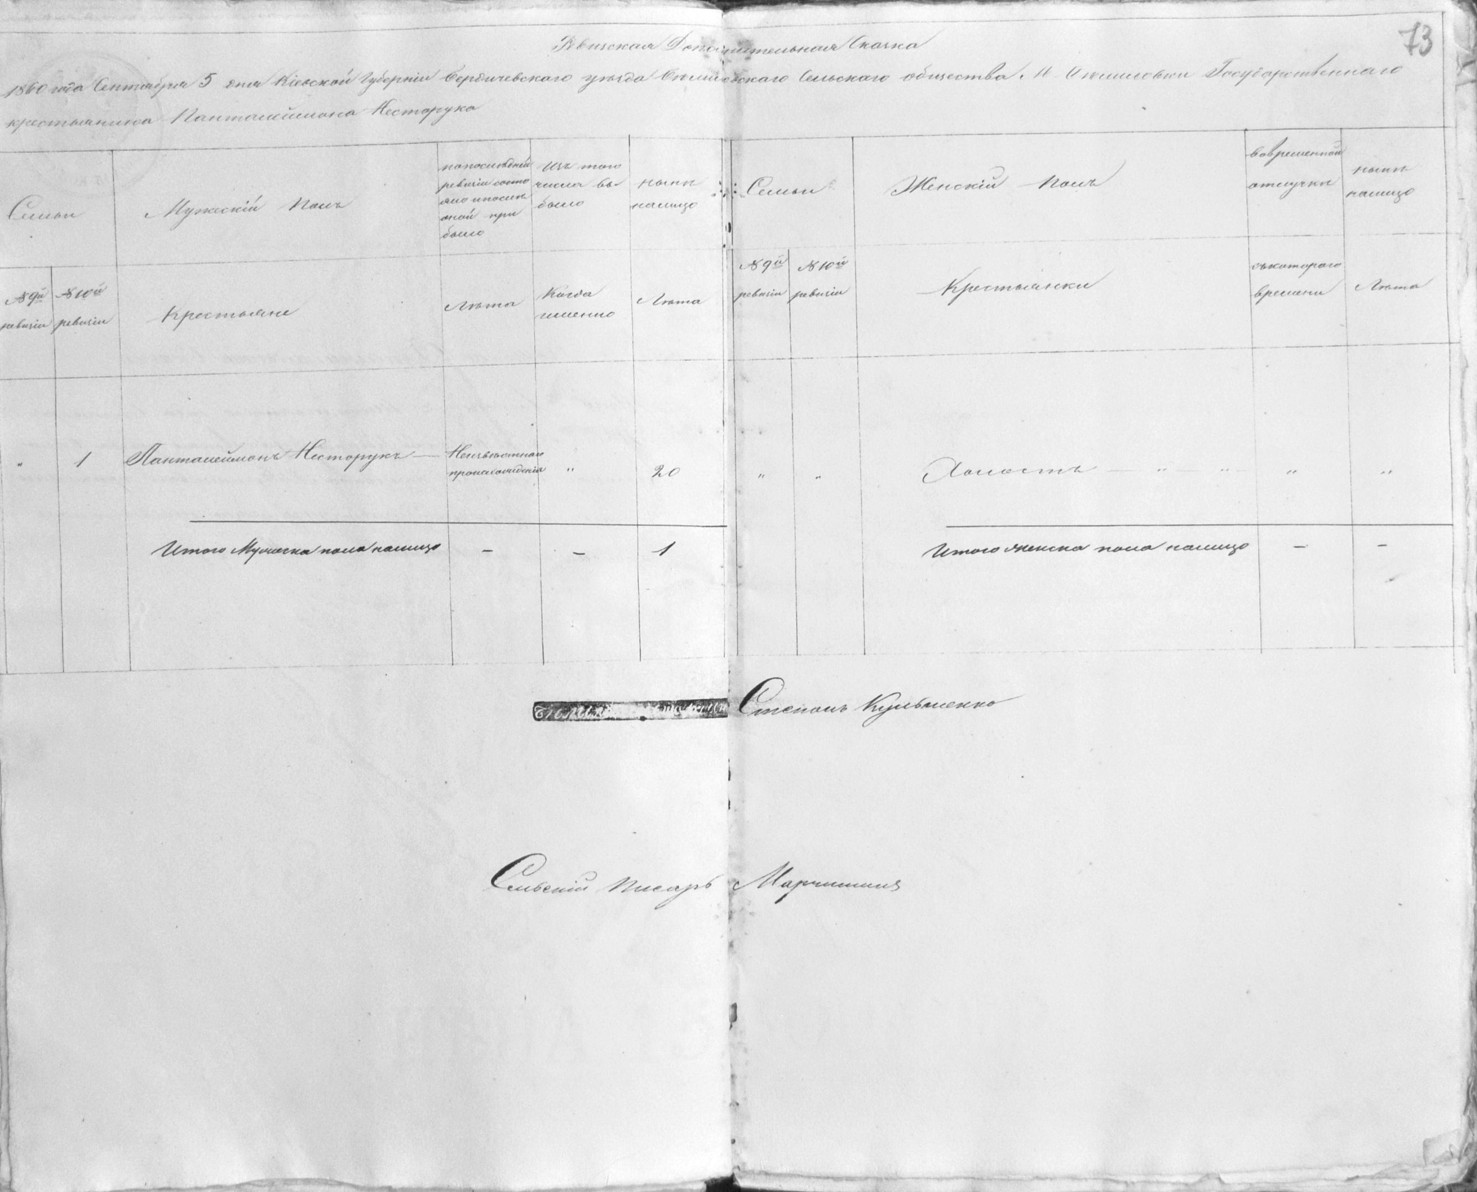 73
Ревизская Дополнительная Сказка
1860 года Сентября 5 дня Кіевской Губерніи Бердичевскаго уѣзда Сельскаго общества Государственнаго
крестьянина Пантелеймона Несторука
Семьи
Мужескій полъ
по последней
ревизіи состо
яло и после
оной при
было
Изъ того
числа вы
было
нынѣ
налицо
Семьи
Женскій полъ
во временной
отлучки
нынѣ
налицо
№ 9й
ревизіи
№ 10й
ревизіи
Крестьяне
Лѣта
Когда
именно
Лѣта
№ 9й
ревизіи
№ 10й
ревизіи
Крестьянки
съ котораго
времени
Лѣта
" 1 Пантелеймонъ Несторукъ — Неизвѣстнаго
происхожденія " 20 " " Холостъ — " " " "
Итого Мужеска пола налицо – – 1 Итого женска пола налицо – –
Степанъ
Сельскій писарь